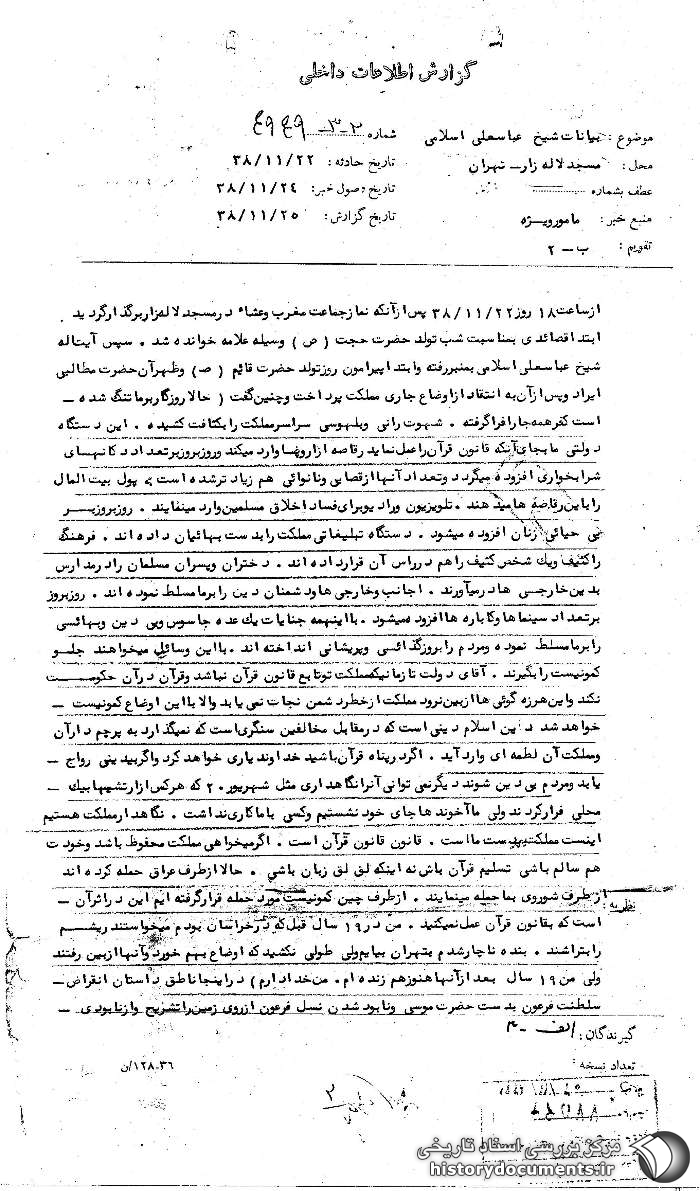 گزارش اطلاعات داخلی
موضوع : بیانات شیخ عباسعلی اسلامی
شماره ۳-۳
محل : مسجد لاله زار - تهران
تاریخ حادثه : ۳۸/۱۱/۲۲
عطف بشماره
تاریخ وصول خبر: ۳۸/۱۱/۲۴
منبع خبر : مامور ویژه
تاریخ گزارش: ۳۸/۱۱/۲۵
تقویم : ب - ۲
ازساعت ۱۸ روز ۳۸/۱۱/۲۲ پس ازآنکه نماز جماعت مغرب وعشاء درمسجد لاله زار برگذار گردید
ابتدا قصائدی بمناسبت شب تولد حضرت حجت ( ص ) وسیله علامه خوانده شد . سپس آیت اله
شیخ عباسعلی اسلامی بمنبر رفته وابتدا پیرامون روز تولد حضرت قائم ( ص ) وظهر آن حضرت مطالبی
ایراد وپس ازآن به انتقاد ازاوضاع جاری مملکت پرداخت وچنین گفت ( حالا روزگار برما تنگ شده -
است کفر همه جارا فراگرفته . شهوت رانی وبلهوسی سراسر مملکت را بکثافت کشیده . این دستگاه
دولتی ما بجای آنکه قانون قرآن را عمل نماید رقاصه ازاروپا وارد میکند وروزبروز بر تعداد دکانهای
شرابخواری افزوده میگردد وتعداد آنها ازقصابی ونانوائی هم زیاد تر شده است ، پول بیت المال
را باین رقاصه ها میدهند . تلویزیون ورادیو برای فساد اخلاق مسلمین وارد مینمایند . روزبروز بر
بی حیائی زنان افزوده میشود . دستگاه تبلیغاتی مملکت را بدست بهائیان داده اند . فرهنگ
راکثیف ویک شخص کثیف را هم درراس آن قرارداده اند . دختران وپسران مسلمان را درمدارس
بدین خارجی ها درمیآورند . اجانب وخارجی ها ودشمنان دین را برما مسلط نموده اند . روزبروز
برتعداد سینماها وکاباره ها افزوده میشود . بااینهمه جنایات یک عده جاسوس وبی دین وبهائسی
را برما مسلط نموده ومردم را بروز گدائسی وپریشانی انداخته اند . بااین وسائل میخواهند جلو
کمونیست را بگیرند . آقای دولت تا زمانیکه مملکت تو تابع قانون قرآن نباشد وقرآن درآن حکومت
نکند واین هرزه گوئی ها ازبین نرود مملکت ازخطر دشمن نجات نمی یابد والا بااین اوضاع کمونیست -
خواهد شد دین اسلام دینی است که درمقابل مخالفین سنگری است که نمیگذارد به پرچم دارآن
ومملکت آن لطمه ای وارد آید . اگر درپناه قرآن باشید خداوند یاری خواهد کرد واگر بیدینی رواج -
یابد ومردم بی دین شوند دیگر نمی توانی آنرا نگاهداری مثل شهریور ۲۰ که هرکس ازارتشیها بیک -
محلی فرار کردند ولی ما آخوندها جای خود نشستیم وکسی با ما کاری نداشت . نگاهدار مملکت هستیم
اینست مملکت بدست ما است . قانون قانون قرآن است . اگر میخواهی مملکت محفوظ باشد وخودت
هم سالم باشی تسلیم قرآن باش نه اینکه لق لق زبان باشی . حالا ازطرف عراق حمله کرده اند
ازطرف شوروی بما حمله مینمایند . ازطرف چین کمونیست مورد حمله قرارگرفته ایم این دراثر آن -
نظریه :
است که بقانون قرآن عمل نمیکنید . من در ۱۹ سال قبل که درخراسان بودم میخواستند ریشم
را بتراشند . بنده ناچار شدم بتهران بیایم ولی طولی نکشید که اوضاع بهم خورد وآنها ازبین رفتند
ولی من ۱۹ سال بعد ازآنها هنوز هم زنده ام . من خدا دارم ) دراینجا ناطق داستان انقراض -
سلطنت فرعون بدست حضرت موسی ونابود شدن نسل فرعون ازروی زمین را تشریح وازنابودی -
گیرندگان : الف - ۳
تعداد نسخه :
۱۲۸-۳۶/ن
۲
مرکز بررسی اسناد تاریخی
historydocuments.ir